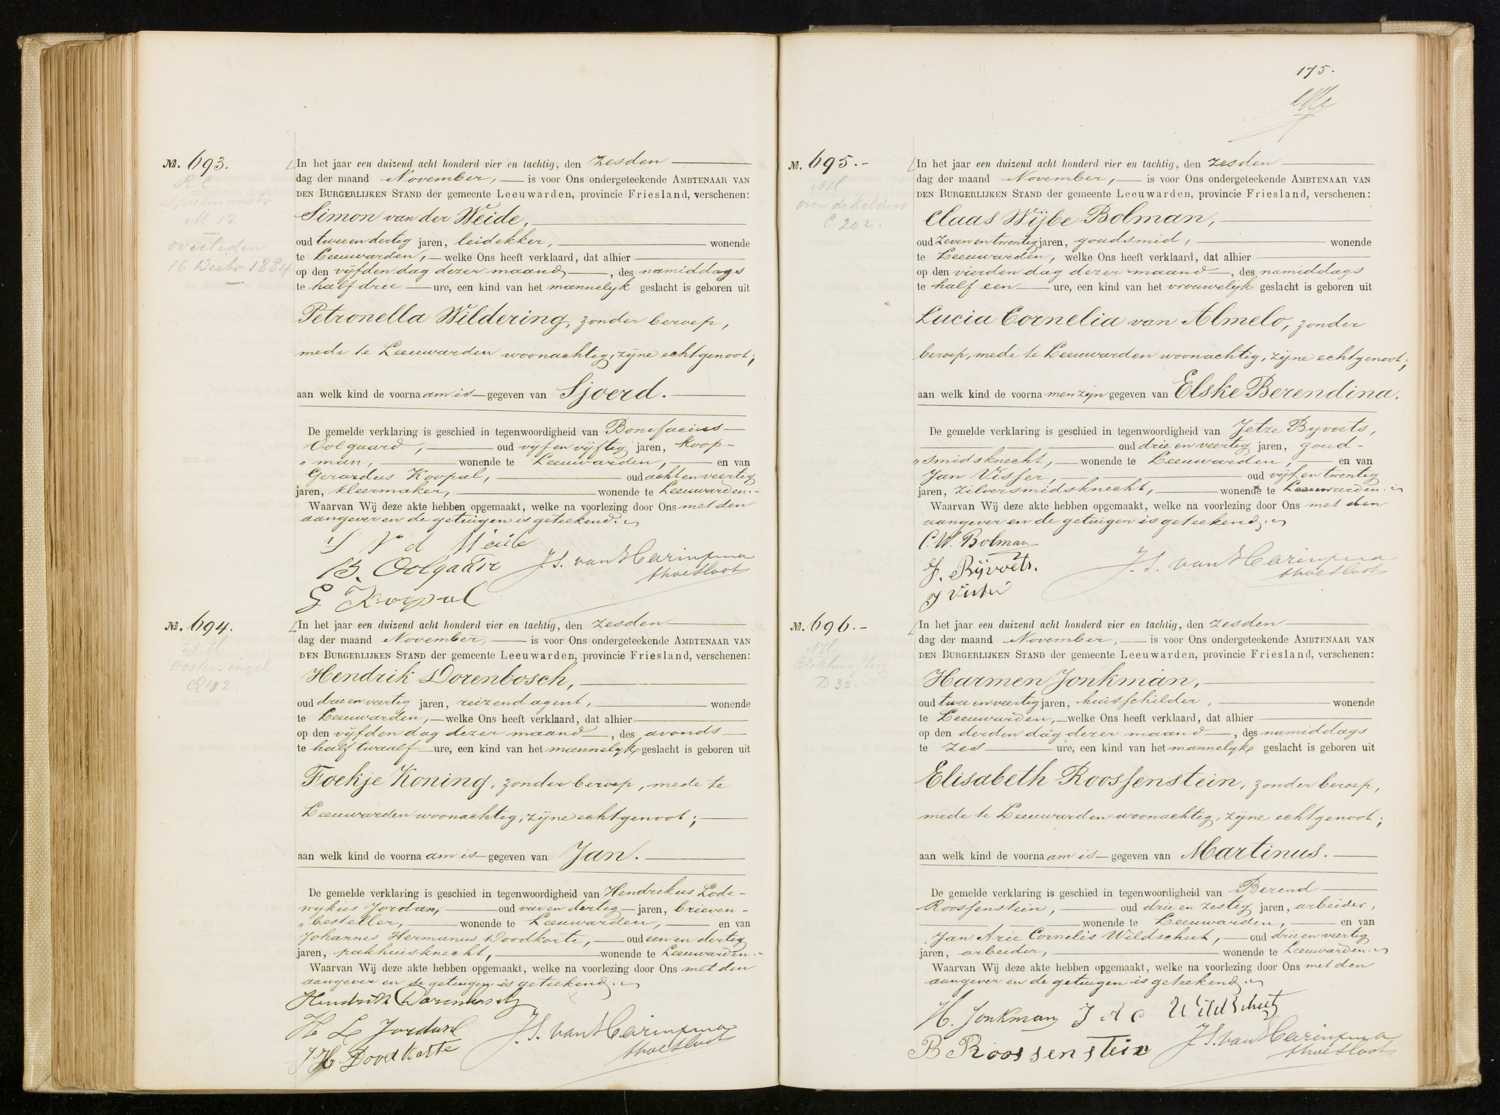 №. 693.
overleden
16 Decbr 1884
In het jaar een duizend acht honderd vier en tachtig, den zesden
dag der maand November, is voor Ons ondergeteekende AMBTENAAR VAN
DEN BURGERLIJKEN STAND der gemeente Leeuwarden, provincie Friesland, verschenen:
Simon van der Weide,
oud twee en dertig jaren, leidekker, wonende
te Leeuwarden, welke Ons heeft verklaard, dat alhier
op den vijfden dag dezer maand, des namiddags
te half drie ure, een kind van het mannelijk geslacht is geboren uit
Petronella Wildering, zonder beroep,
mede te Leeuwarden woonachtig, zijne echtgenoot;
aan welk kind de voornaam is gegeven van Sjoerd.
De gemelde verklaring is geschied in tegenwoordigheid van Bonifacius
Oolgaard, oud vijf en vijftig jaren, koop-
"man, wonende te Leeuwarden, en van
Gerardus Koopal, oud acht en veertig
jaren, kleermaker, wonende te Leeuwarden.
Waarvan Wij deze akte hebben opgemaakt, welke na voorlezing door Ons met den
aangever en de getuigen is geteekend.
S v d Weide
B. Oolgaard J. S. van Harinxma
thoe Slooten
G Koopal
№. 694.
In het jaar een duizend acht honderd vier en tachtig, den zesden
dag der maand November, is voor Ons ondergeteekende AMBTENAAR VAN
DEN BURGERLIJKEN STAND der gemeente Leeuwarden, provincie Friesland, verschenen:
Hendrik Dorenbosch,
oud drie en veertig jaren, reizend agent, wonende
te Leeuwarden, welke Ons heeft verklaard, dat alhier
op den vijfden dag dezer maand, des avonds
te half twaalf ure, een kind van het mannelijk geslacht is geboren uit
Foekje Koning, zonder beroep, mede te
Leeuwarden woonachtig, zijne echtgenoot;
aan welk kind de voornaam is gegeven van Jan.
De gemelde verklaring is geschied in tegenwoordigheid van Hendrikus Lode-
wijkus Jordan, oud vier en dertig jaren, brieven-
"besteller, wonende te Leeuwarden, en van
Johannes Hermanus Doodkorte, oud een en dertig
jaren, pakhuisknecht, wonende te Leeuwarden.
Waarvan Wij deze akte hebben opgemaakt, welke na voorlezing door Ons met den
aangever en de getuigen is geteekend.
Hendrik Dorenbosch
H L Jordan J. S. van Harinxma
thoe Slooten
J H Doodkorte
175.
№. 695.
C 202.
In het jaar een duizend acht honderd vier en tachtig, den zesden
dag der maand November, is voor Ons ondergeteekende AMBTENAAR VAN
DEN BURGERLIJKEN STAND der gemeente Leeuwarden, provincie Friesland, verschenen:
Claas Wijbe Bolman,
oud zeven en twintig jaren, goudsmid, wonende
te Leeuwarden, welke Ons heeft verklaard, dat alhier
op den vierden dag dezer maand, des namiddags
te half een ure, een kind van het vrouwelijk geslacht is geboren uit
Lucia Cornelia van Almelo, zonder
beroep, mede te Leeuwarden woonachtig, zijne echtgenoot;
aan welk kind de voornamen zijn gegeven van Elske Berendina.
De gemelde verklaring is geschied in tegenwoordigheid van Jetze Ryvoets,
oud drie en veertig jaren, goud-
"smidsknecht, wonende te Leeuwarden, en van
Jan Visser, oud vijf en twintig
jaren, zilversmidsknecht, wonende te Leeuwarden.
Waarvan Wij deze akte hebben opgemaakt, welke na voorlezing door Ons met den
aangever en de getuigen is geteekend.
C. W. Bolman
J. Rijvoets. J. S. van Harinxma
thoe Slooten
J Visser
№. 696.
D 35.
In het jaar een duizend acht honderd vier en tachtig, den zesden
dag der maand November, is voor Ons ondergeteekende AMBTENAAR VAN
DEN BURGERLIJKEN STAND der gemeente Leeuwarden, provincie Friesland, verschenen:
Harmen Jonkman,
oud twee en veertig jaren, huisschilder, wonende
te Leeuwarden, welke Ons heeft verklaard, dat alhier
op den derden dag dezer maand, des namiddags
te zes ure, een kind van het mannelijk geslacht is geboren uit
Elisabeth Roossenstein, zonder beroep,
mede te Leeuwarden woonachtig, zijne echtgenoot;
aan welk kind de voornaam is gegeven van Martinus.
De gemelde verklaring is geschied in tegenwoordigheid van Berend
Roossenstein, oud drie en zestig jaren, arbeider,
wonende te Leeuwarden, en van
Jan Arie Cornelis Wildschut, oud drie en veertig
jaren, arbeider, wonende te Leeuwarden.
Waarvan Wij deze akte hebben opgemaakt, welke na voorlezing door Ons met den
aangever en de getuigen is geteekend.
H. Jonkman J A C Wildschut
B Roossenstein J. S. van Harinxma
thoe Slooten